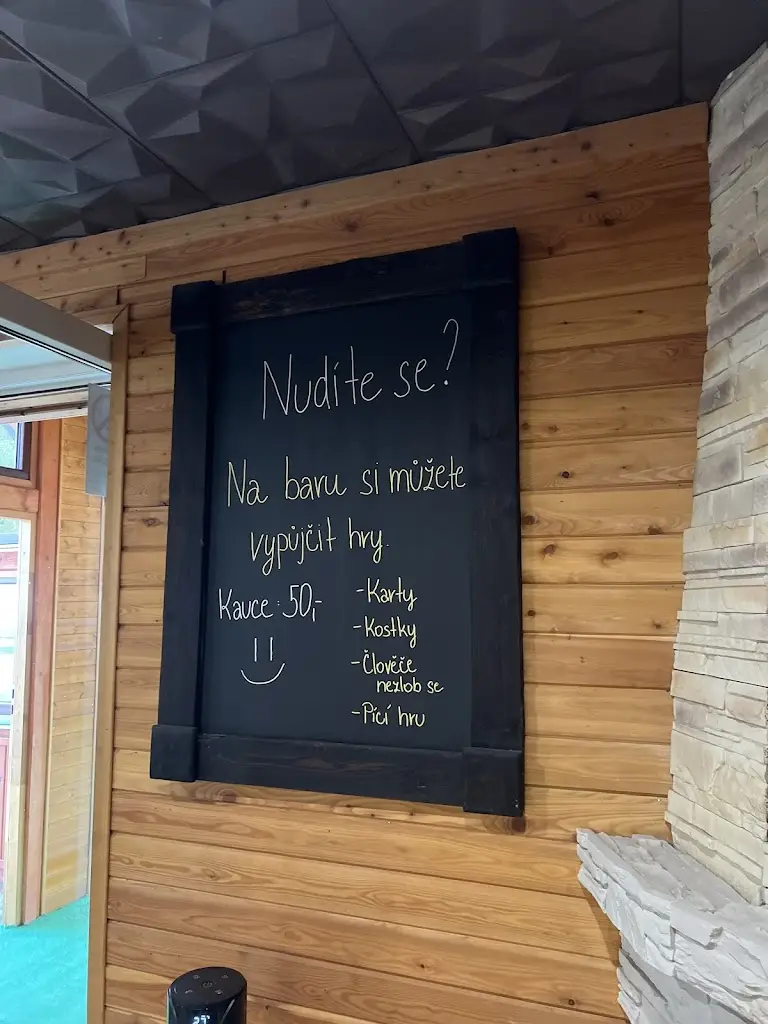 Nudíte se?
Na baru si můžete
vypůjčit hry.
Kauce: 50,-
-Karty
-Kostky
-Člověče
nezlob se
-Pící hru